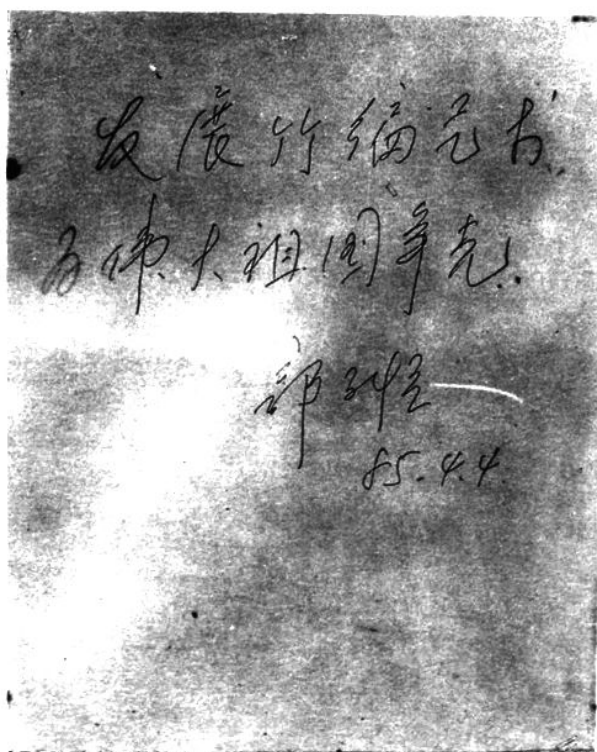 发展竹编艺术
为伟大祖国争光.
85.4.4.